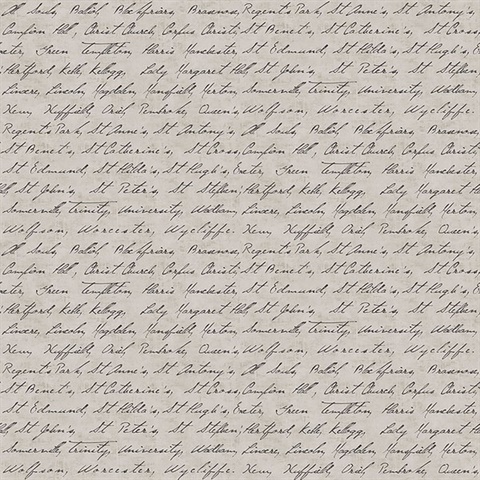 All Souls, Baliol, Blackfriars, Braasnos, Regent's Park, St Anne's, St Antony's,
Campion Hall, Christ Church, Corpus Christi, St Benet's, St Catherine's, St Cross,
Exeter, Green Templeton, Harris Manchester, St Edmund, St Hilda's, St Hugh's, E
Hertford, Keble, Kellogg, Lady Margaret Hall, St John's, St Peter's, St Stephen
Linacre, Lincoln, Magdalen, Mansfield, Merton, Somerville, Trinity, University, Wadham,
Nuffield, Oriel, Pembroke, Queen's, Wolfson, Worcester, Wycliffe.
Regent's Park, St Anne's, St Antony's, All Souls, Baliol, Blackfriars, Braasnos,
St Benet's, St Catherine's, St Cross, Campion Hall, Christ Church, Corpus Christi,
St Edmund, St Hilda's, St Hugh's, Exeter, Green Templeton, Harris Manchester,
St John's, St Peter's, St Stephen, Hertford, Keble, Kellogg, Lady Margaret H
Somerville, Trinity, University, Wadham, Linacre, Lincoln, Magdalen, Mansfield, Merton
Wolfson, Worcester, Wycliffe. Nuffield, Oriel, Pembroke, Queen's
All Souls, Baliol, Blackfriars, Braasnos, Regent's Park, St Anne's, St Antony's,
Campion Hall, Christ Church, Corpus Christi, St Benet's, St Catherine's, St Cross
Exeter, Green Templeton, Harris Manchester, St Edmund, St Hilda's, St Hugh's, E
Hertford, Keble, Kellogg, Lady Margaret Hall, St John's, St Peter's, St Stephen
Linacre, Lincoln, Magdalen, Mansfield, Merton, Somerville, Trinity, University, Wadham,
Nuffield, Oriel, Pembroke, Queen's, Wolfson, Worcester, Wycliffe.
Regent's Park, St Anne's, St Antony's, All Souls, Baliol, Blackfriars, Braasnos,
St Benet's, St Catherine's, St Cross, Campion Hall, Christ Church, Corpus Christi,
St Edmund, St Hilda's, St Hugh's, Exeter, Green Templeton, Harris Manchester,
St John's, St Peter's, St Stephen, Hertford, Keble, Kellogg, Lady Margaret H
Somerville, Trinity, University, Wadham, Linacre, Lincoln, Magdalen, Mansfield, Merton
Wolfson, Worcester, Wycliffe. Nuffield, Oriel, Pembroke, Queen's